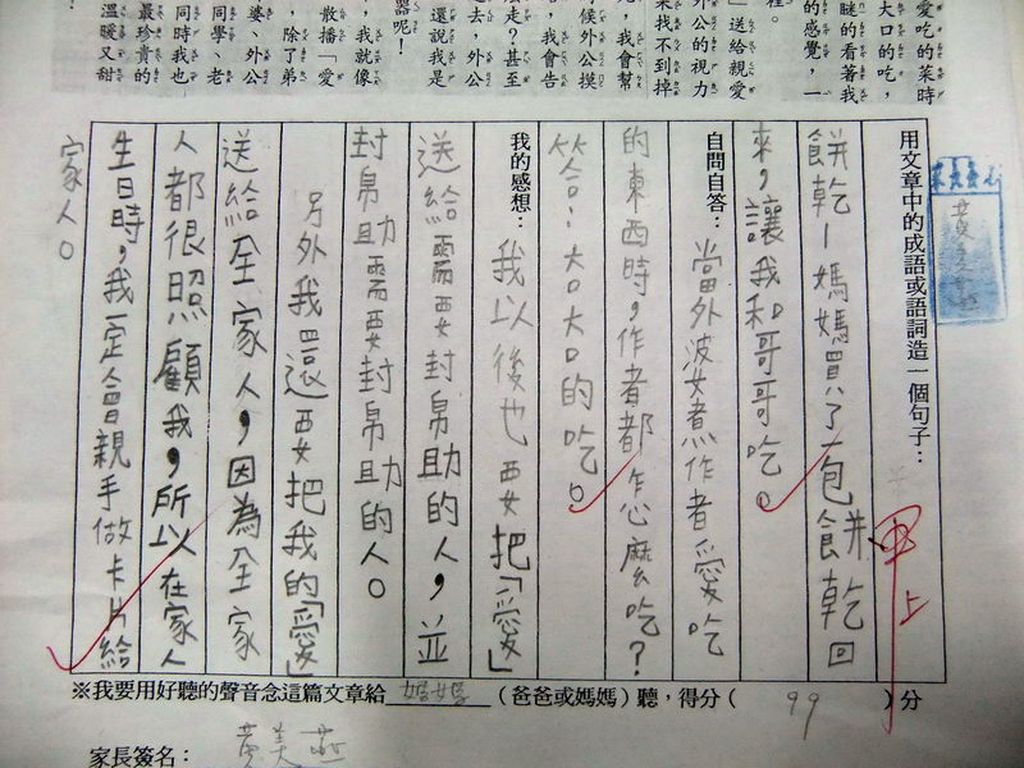 愛吃的菜時
大口的吃，
瞇的看著我
的感覺，一
程。
」送給親愛
外公的視力
來找不到掉
，我會幫
候外公摸
，我會告
走？甚至
去，外公
還說我是
器呢！
，我就像
散播「愛
，除了弟
婆、外公
同學、老
同時我也
最珍貴的
溫暖又甜
用文章中的成語或語詞造一個句子：
餅乾－媽媽買了一包餅乾回
來，讓我和哥哥吃。
自問自答：當外婆煮作者愛吃
的東西時，作者都怎麼吃？
答：大口大口的吃。
我的感想：我以後也要把「愛」
送給需要幫助的人，並
幫助需要幫助的人。
另外我還要把我的「愛」
送給全家人，因為全家
人都很照顧我，所以在家人
生日時，我一定會親手做卡片給
家人。
甲上
※我要用好聽的聲音念這篇文章給媽媽（爸爸或媽媽）聽，得分（99）分
家長簽名：黃美燕